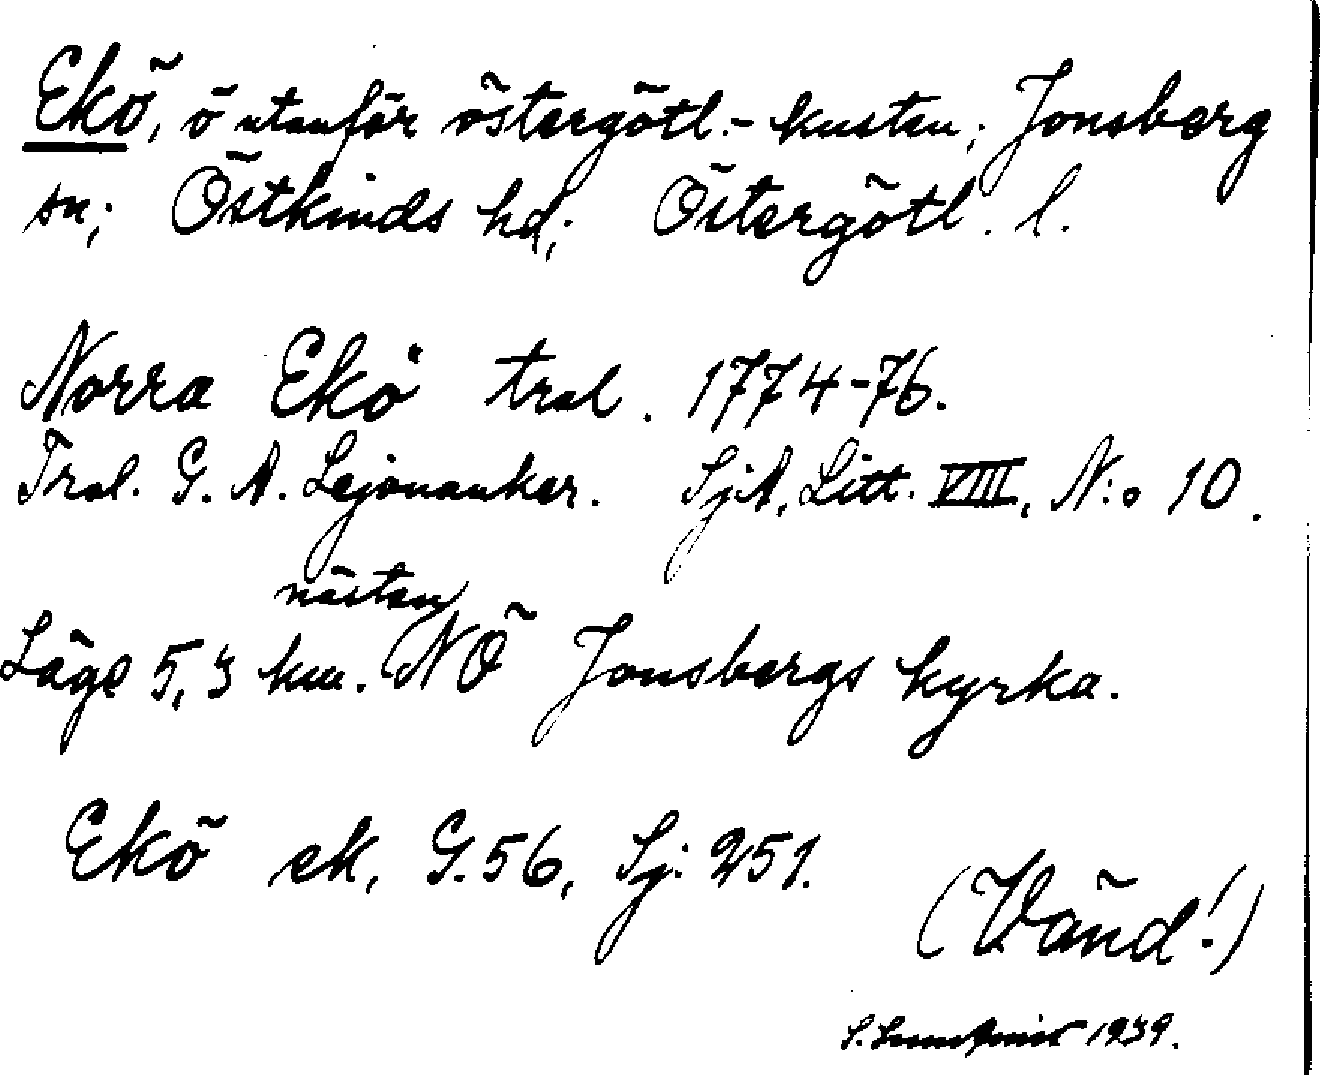 Ekö, ö utanför östergötl.-kusten; Jonsberg
sn; Östkinds hd; Östergötl. l.
Norra Ekö tral. 1774-76.
Tral. G. A. Lejonanker. SjA, Litt. VIII, N:o 10.
nästan
Läge 5,3 km. NÖ Jonsbergs kyrka.
Ekö ek, G.56, Sj: 251.
(Vänd!)
S. 1939.